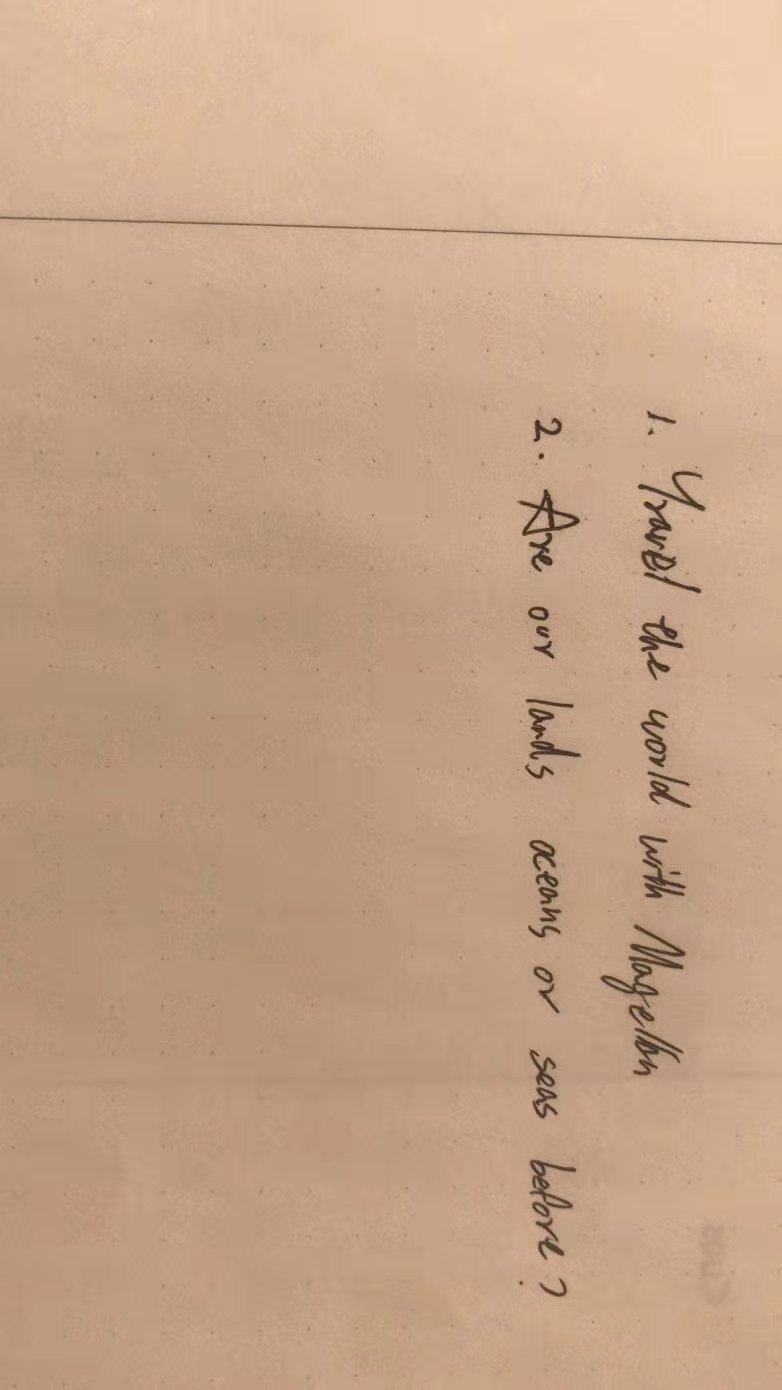 1. Travel the world with Magellan
2. Are our lands oceans or seas before?